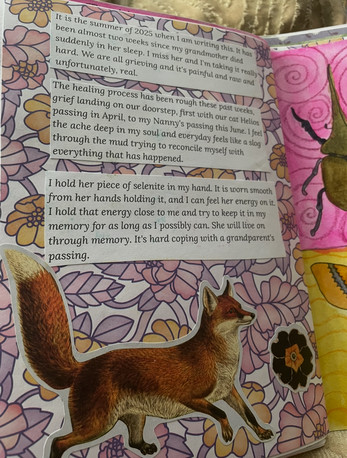 It is the summer of 2025 when I am writing this. It has
been almost two weeks since my grandmother died
suddenly in her sleep. I miss her and I'm taking it really
hard. We are all grieving and it's painful and raw and
unfortunately, real.
The healing process has been rough these past weeks,
grief landing on our doorstep, first with our cat Helios
passing in April, to my Nanny's passing this June. I feel
the ache deep in my soul and everyday feels like a slog
through the mud trying to reconcile myself with
everything that has happened.
I hold her piece of selenite in my hand. It is worn smooth
from her hands holding it, and I can feel her energy on it.
I hold that energy close to me and try to keep it in my
memory for as long as I possibly can. She will live on
through memory. It's hard coping with a grandparent's
passing.